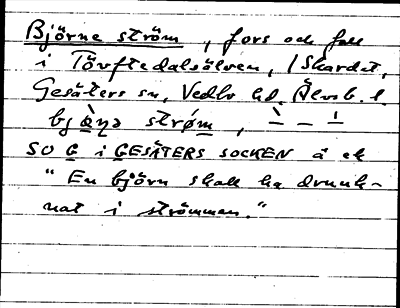 Björne ström, fors och fall
i Tövftedalsälven, i Skardet,
Gesäters sn, Vedbo hd. Älvsb. l.
bjö̀ṇə strøm, 
SO G i GESÄTERS SOCKEN å ek
"En björn skall ha drunk-
nat i strömmen."